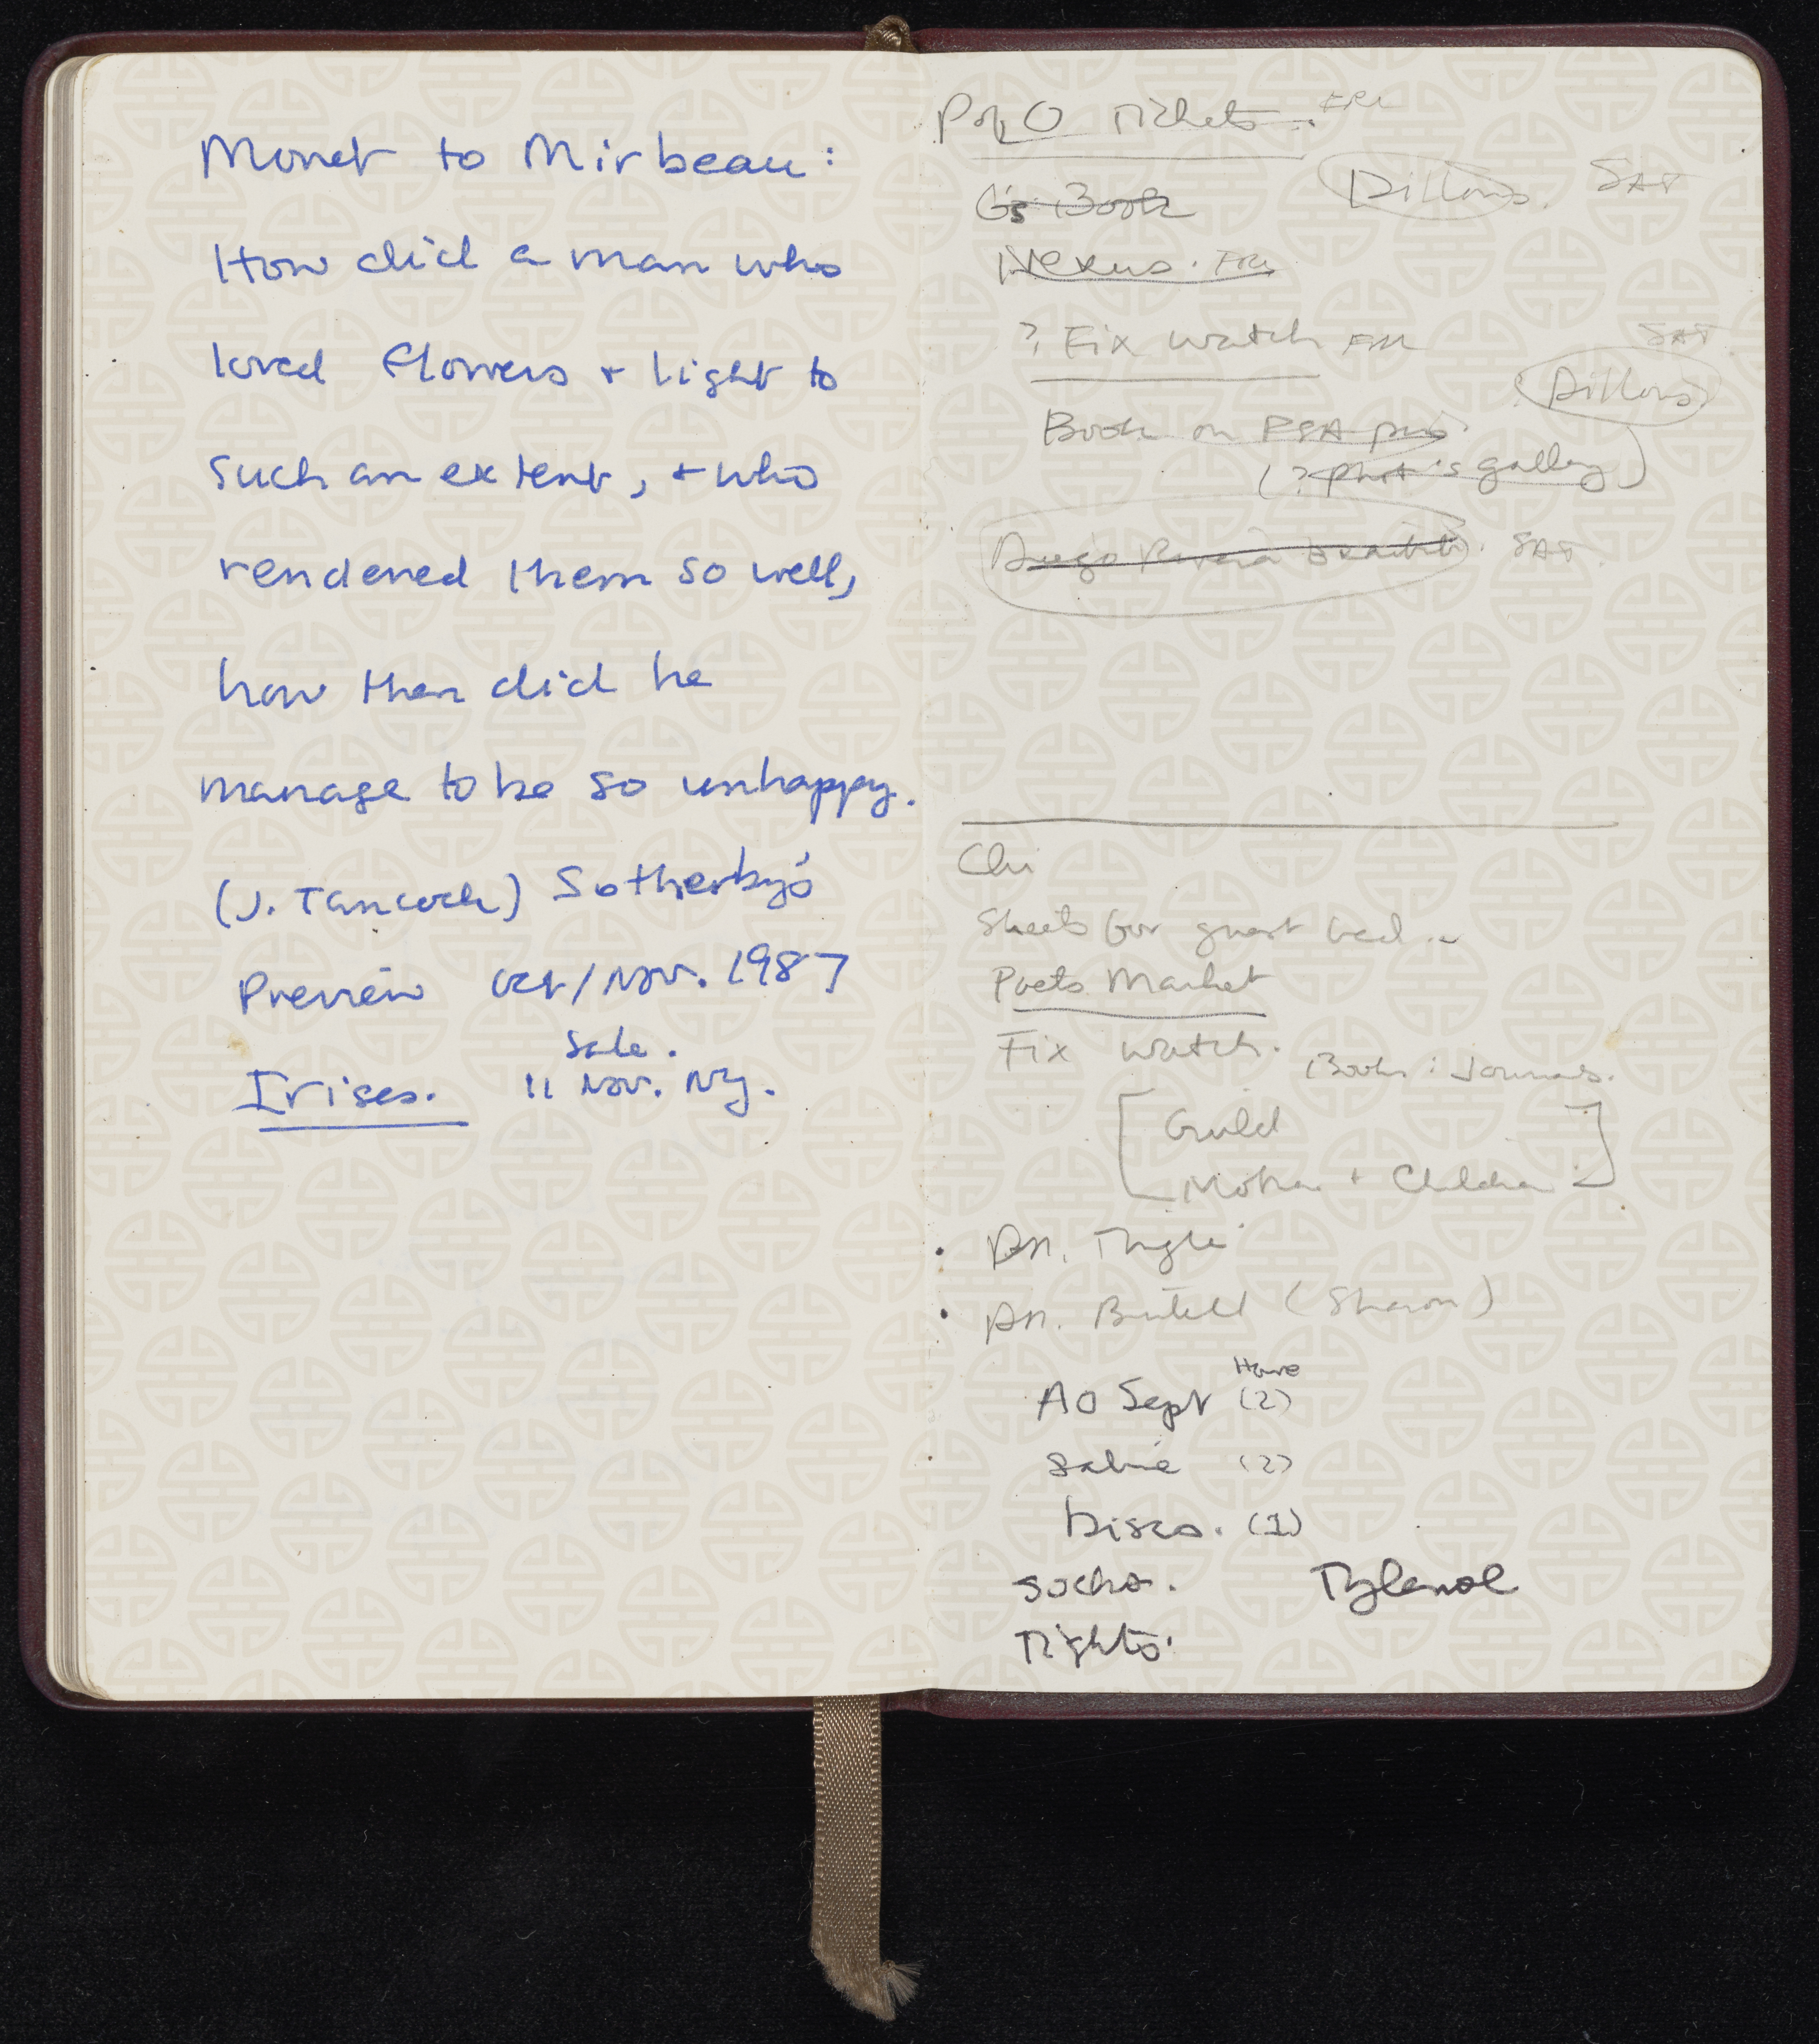 Monet to Mirbeau:
How did a man who
loved flowers + light to
such an extent, + who
rendered them so well,
how then did he
manage to be so unhappy.
(J. Tancock) Sotheby's
Preview Oct/Nov. 1987
Sale.
Irises. 11 Nov. NY.
P&O Tickets. FRI
G's Book
Dillons. SAT
Nexus. FRI
? Fix watch FRI
SAT.
Dillons
Book on
(? Phot's gallery)
Diego Rivera SAT.
Chi
Sheets for guest bed
Poets Market
Fix watch.
Books: Journals.
[Guild
Mother + Children]
• Dr.
• Dr. (Sharon)
Have
AO Sept (2)
(2)
Discs. (1)
socks. Tylenol
Tights.